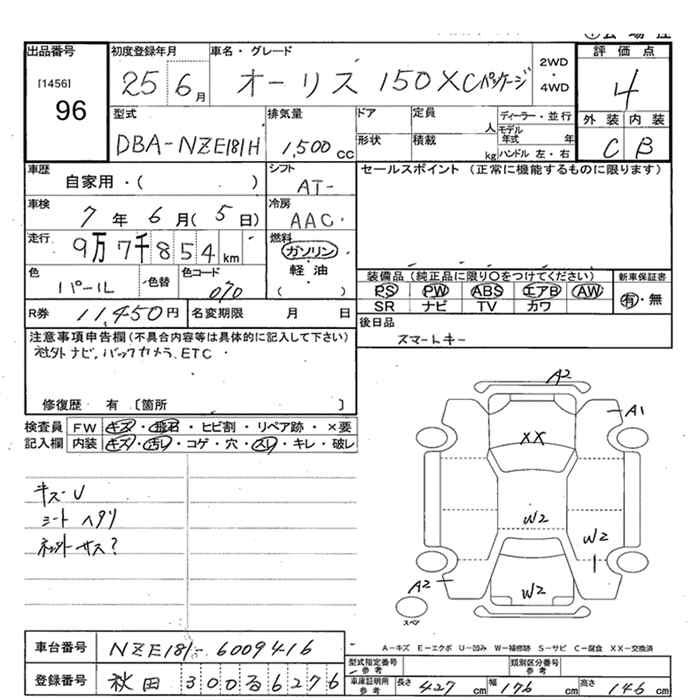 出品番号
[1456]
96
初度登録年月
25 6月
車名・グレード
オーリス 150XCパッケージ
2WD
・
4WD
評価点
4
外装 内装
C B
型式
DBA-NZE181H
排気量
1,500 cc
ドア
定員
人
形状
積載
kg
ディーラー・並行
モデル年式 年
ハンドル 左・右
車歴
自家用・( )
シフト
AT-
セールスポイント (正常に機能するものに限ります)
車検
7年 6月( 5日)
冷房
AAC
走行
9万7千854km
燃料
ガソリン
軽油
( )
色
パール
色替
色コード
070
装備品 (純正品に限り○をつけてください)
PS PW ABS エアB AW
SR ナビ TV カワ
新車保証書
有・無
R券 11,450円
名変期限 月 日
後日品
スマートキー
注意事項申告欄(不具合内容等は具体的に記入して下さい)
社外ナビ,バックカメラ,ETC
修復歴 有 〔箇所 〕
検査員記入欄
FW キズ・飛石・ヒビ割・リペア跡・×要
内装 キズ・汚レ・コゲ・穴・スレ・キレ・破レ
キズ-U
シート ヘタリ
A2
A1
XX
W2
W2
W2
A2
スペア
A-キズ E-エクボ U-凹み W-補修跡 S-サビ C-腐食 XX-交換済
車台番号 NZE181-6009416
登録番号 秋田 300 る 6276
型式指定番号 参考
類別区分番号 参考
車庫証明用 参考 長さ 427cm 幅 176cm 高さ 146cm